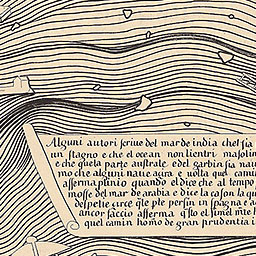 Alguni autori scriue del mar de india chel sia
un stagno e che el ocean non lientri ma solin
e che questa parte australe e del garbin sia nau
mo che alguni naue açira e uolta quel camin
afferma plinio quando el dice che al tempo
mosse del mar de arabia e dice la cason la qu
despetie circe qste pte per sin in spagna e a
ancor faccio afferma qsto el simel inte h
quel camin homo de gran prudentia i